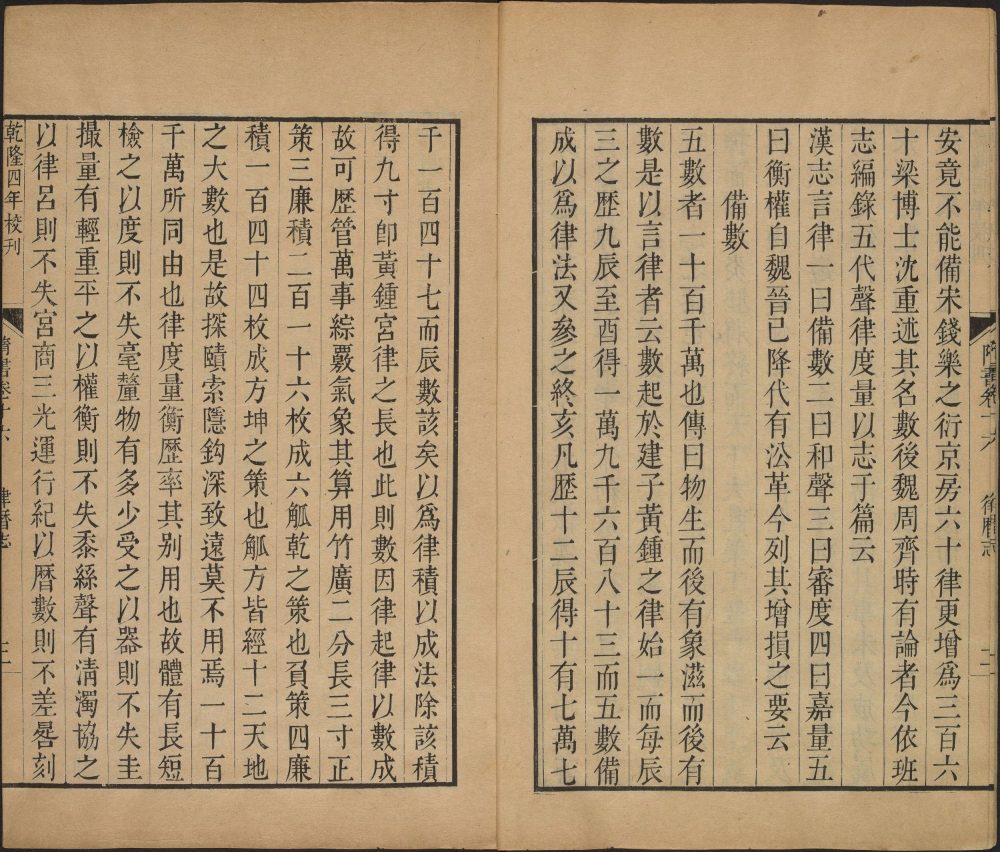 安竟不能備宋錢樂之衍京房六十律更增爲三百六
十梁博士沈重述其名數後魏周齊時有論者今依班
志編錄五代聲律度量以志于篇云
漢志言律一曰備數二曰和聲三曰審度四曰嘉量五
曰衡權自魏晉已降代有沿革今列其增損之要云
備數
五數者一十百千萬也傳曰物生而後有象滋而後有
數是以言律者云數起於建子黃鍾之律始一而每辰
三之歷九辰至酉得一萬九千六百八十三而五數備
成以爲律法又參之終亥凡歷十二辰得十有七萬七
千一百四十七而辰數該矣以爲律積以成法除該積
得九寸卽黃鍾宮律之長也此則數因律起律以數成
故可歷管萬事綜覈氣象其算用竹廣二分長三寸正
策三廉積二百一十六枚成六觚乾之策也負策四廉
積一百四十四枚成方坤之策也觚方皆經十二天地
之大數也是故探賾索隱鈎深致遠莫不用焉一十百
千萬所同由也律度量衡歷率其别用也故體有長短
檢之以度則不失毫釐物有多少受之以器則不失圭
撮量有輕重平之以權衡則不失黍絲聲有淸濁協之
以律呂則不失宮商三光運行紀以曆數則不差晷刻
乾隆四年校刊
隋書卷十六 律曆志